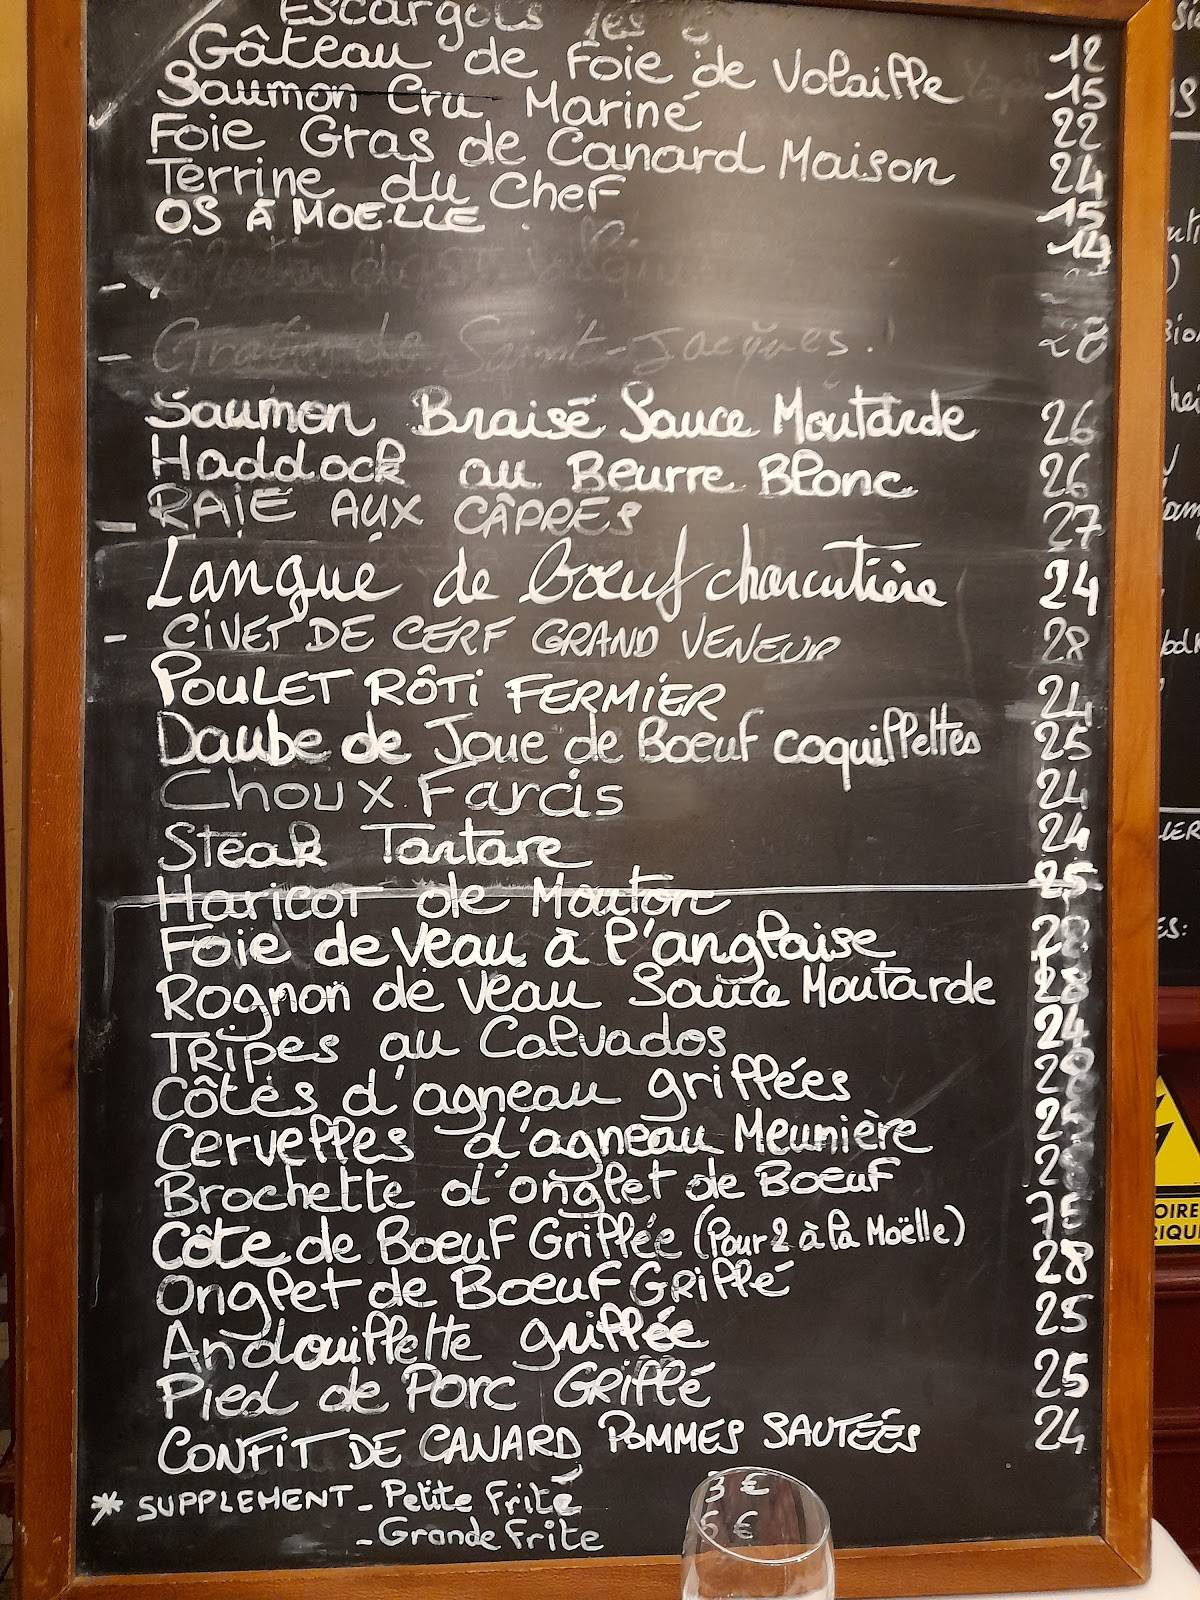 Escargots les 6 12
Gâteau de Foie de Volaille 15
Saumon Cru Mariné 22
Foie Gras de Canard Maison 24
Terrine du Chef 15
OS À MOELLE. 14
-
- Gratin de Saint-Jacques. 28
Saumon Braisé Sauce Moutarde 26
Haddock au Beurre Blanc 26
- RAIE AUX CÂPRES 27
Langue de bœuf charcutière 24
- CIVET DE CERF GRAND VENEUR 28
POULET RÔTI FERMIER 24
Daube de Joue de Boeuf coquillettes 25
Choux Farcis 24
Steak Tartare 24
Haricot de Mouton 25
Foie de Veau à l'anglaise 28
Rognon de Veau Sauce Moutarde 28
TRIPES au Calvados 24
Côtes d'agneau grillées
Cervelles d'agneau Meunière
Brochette d'onglet de Boeuf
Côte de Boeuf Grillée (Pour 2 à la Moëlle) 75
Onglet de Boeuf Grillé 28
Andouillette grillée 25
Pied de Porc Grillé 25
CONFIT DE CANARD POMMES SAUTÉES 24
* SUPPLEMENT - Petite Frite 3 €
- Grande Frite 5 €
OIRE
RIQUE